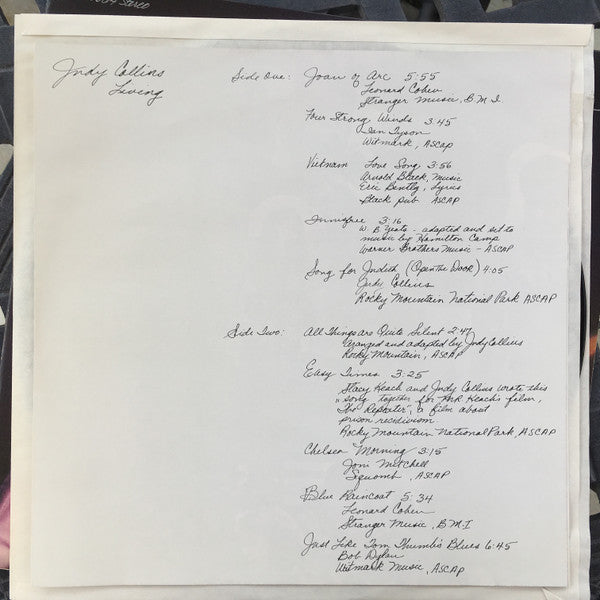 Stereo
Judy Collins
Living
Side One: Joan of Arc 5:55
Leonard Cohen
Stranger Music, B.M.I
Four Strong Winds 3:45
Ian Tyson
Witmark, ASCAP
Vietnam Love Song 3:56
Arnold Black, Music
Eric Bentley, Lyrics
Black Pub. ASCAP
Innisfree 3:16
W. B Yeats - adapted and set to
music by Hamilton Camp
Warner Brothers Music - ASCAP
Song for Judith (Open the Door) 4:05
Judy Collins
Rocky Mountain National Park ASCAP
Side Two: All Things are Quite Silent 2:47
Arranged and adapted by Judy Collins
Rocky Mountain, ASCAP
Easy Times 3:25
Stacy Keach and Judy Collins wrote this
song together for Keach's film,
"The Repeater", a film about
prison recidivism
Rocky Mountain National Park, ASCAP
Chelsea Morning 3:15
Joni Mitchell
Siquomb, ASCAP
Blue Raincoat 5:34
Leonard Cohen
Stranger Music, B.M.I
Just Like Tom Thumb's Blues 6:45
Bob Dylan
Witmark Music, ASCAP